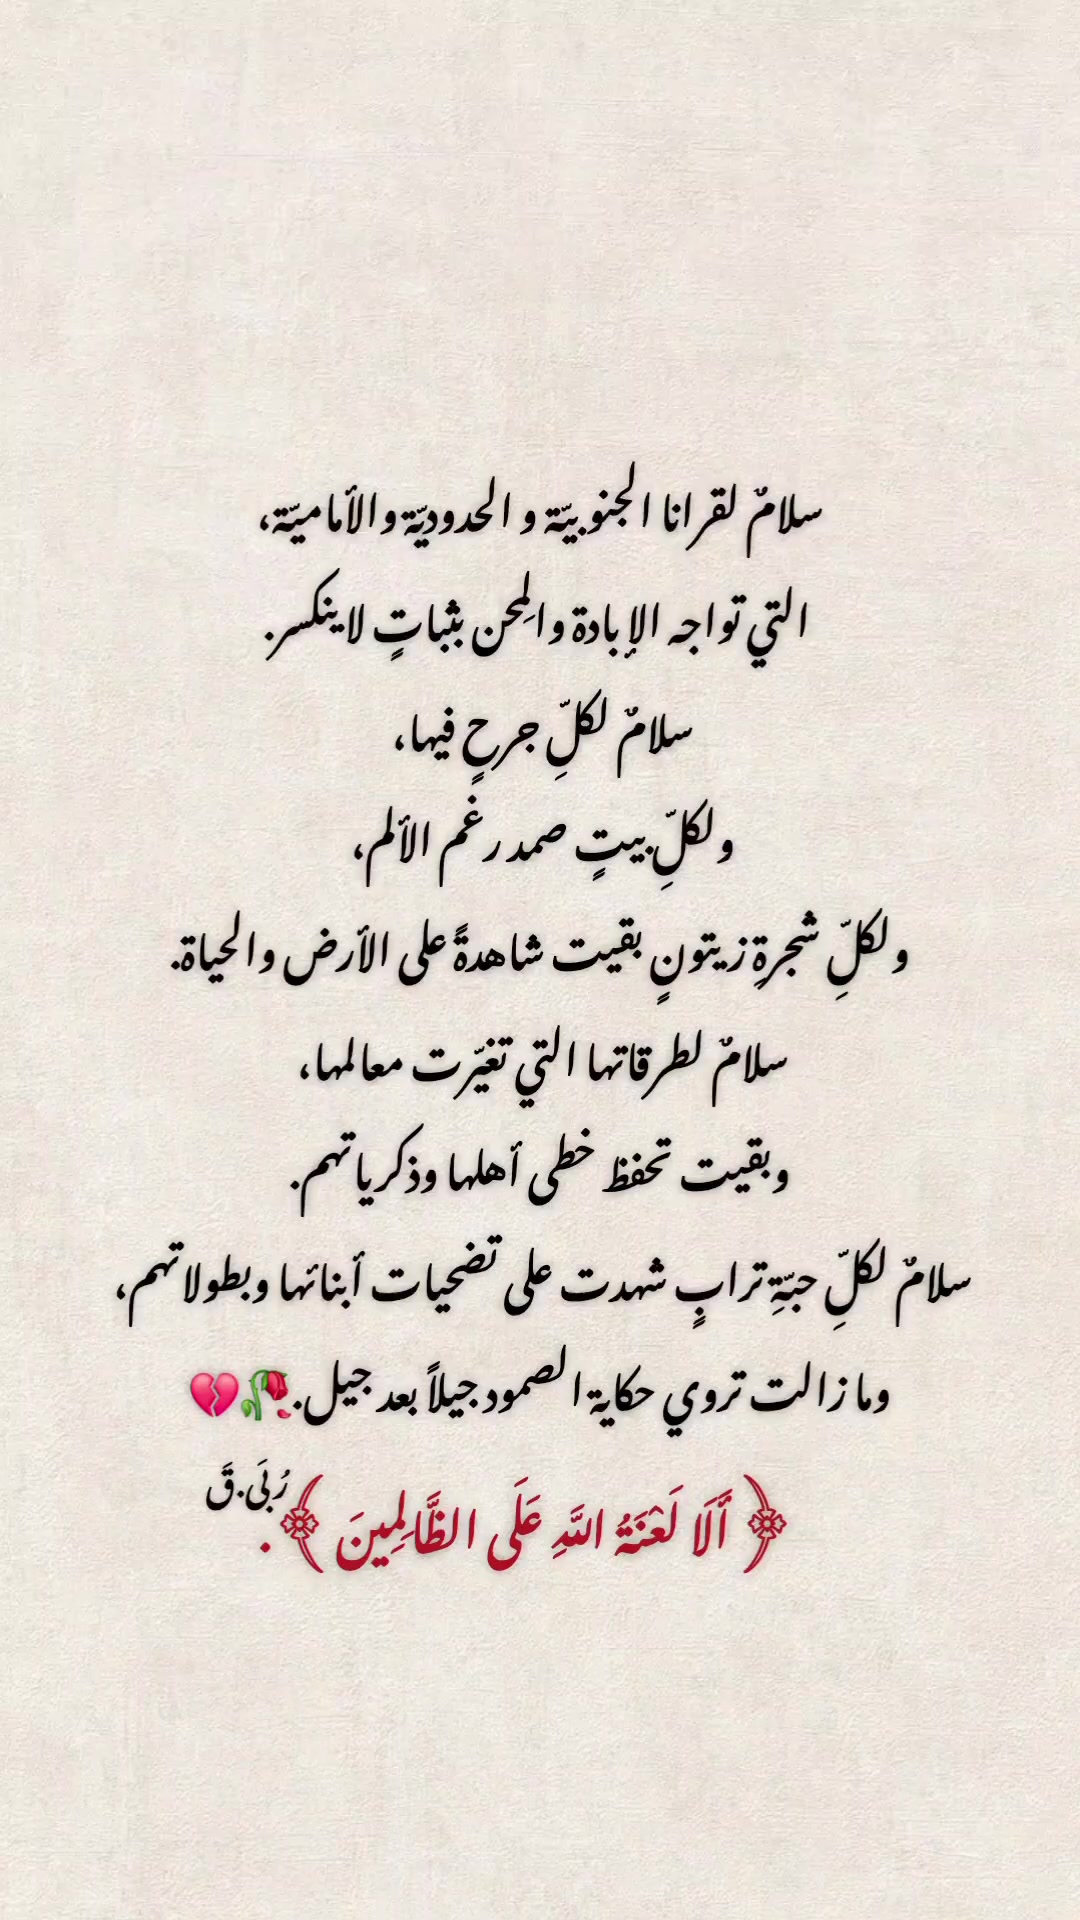 سلامٌ لقرانا الجنوبيّة و الحدوديّة والأماميّة،
التي تواجه الإبادة والمِحن بثباتٍ لا ينكسر.
سلامٌ لكلِّ جرحٍ فيها،
ولكلِّ بيتٍ صمد رغم الألم،
ولكلِّ شجرةِ زيتونٍ بقيت شاهدةً على الأرض والحياة.
سلامٌ لطرقاتها التي تغيّرت معالمها،
وبقيت تحفظ خطى أهلها وذكرياتهم.
سلامٌ لكلِّ حبّةِ ترابٍ شهدت على تضحيات أبنائها وبطولاتهم،
وما زالت تروي حكاية الصمود جيلاً بعد جيل.🥀💔
﴿ أَلَا لَعْنَةُ اللَّهِ عَلَى الظَّالِمِينَ ﴾.
رُبَى.قَ